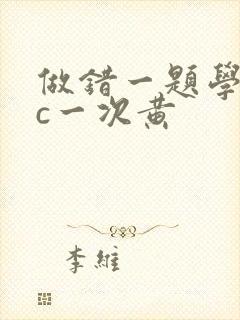 做錯一題學
c一次黄
李維